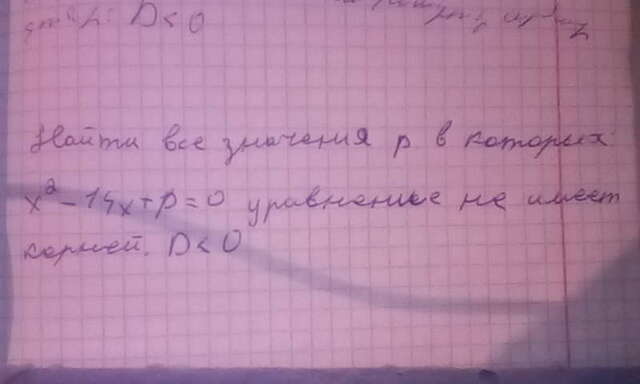 D < 0
Найти все значения p в которых
x² - 14x + p = 0 уравнение не имеет
корней. D < 0